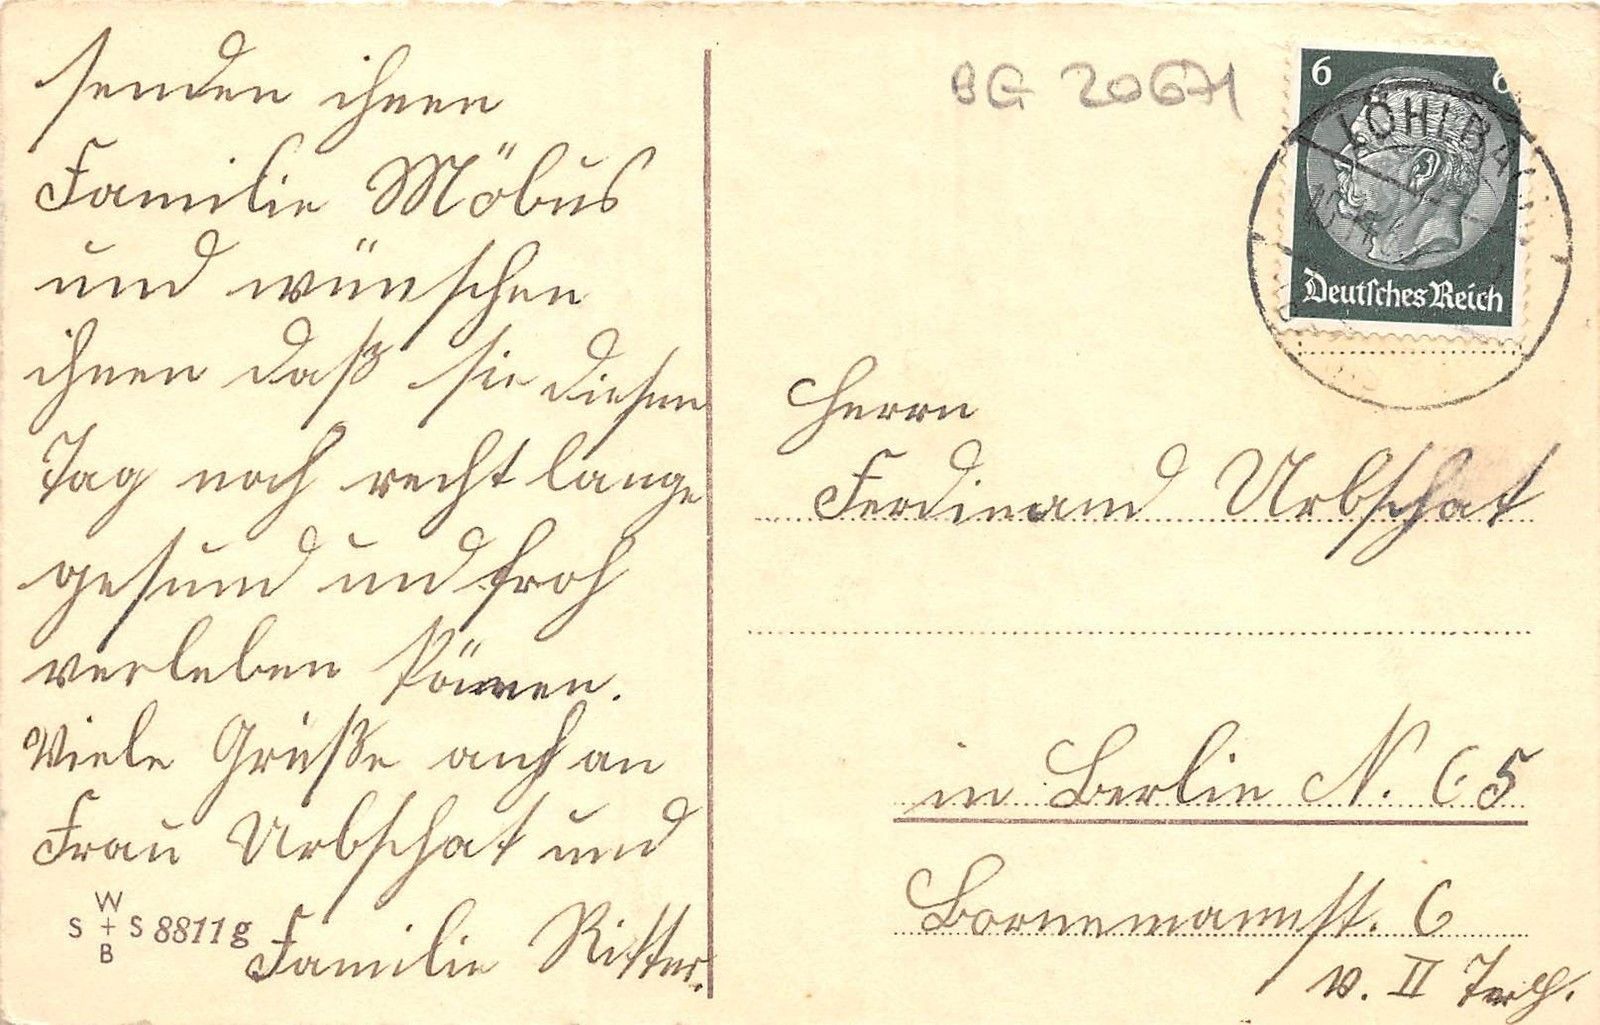 senden ihnen
Familie Möbus
und wünschen
ihnen daß sie diesen
Tag noch recht lange
gesund und froh
verleben können.
Viele Grüße auch an
Frau Urbschat und
Familie Ritter.
W
S + S 8811 g
B
BG 20671
6 6
Deutsches Reich
Herrn
Ferdinand Urbschat
in Berlin N. 65
Bornemannstr. 6
v. II